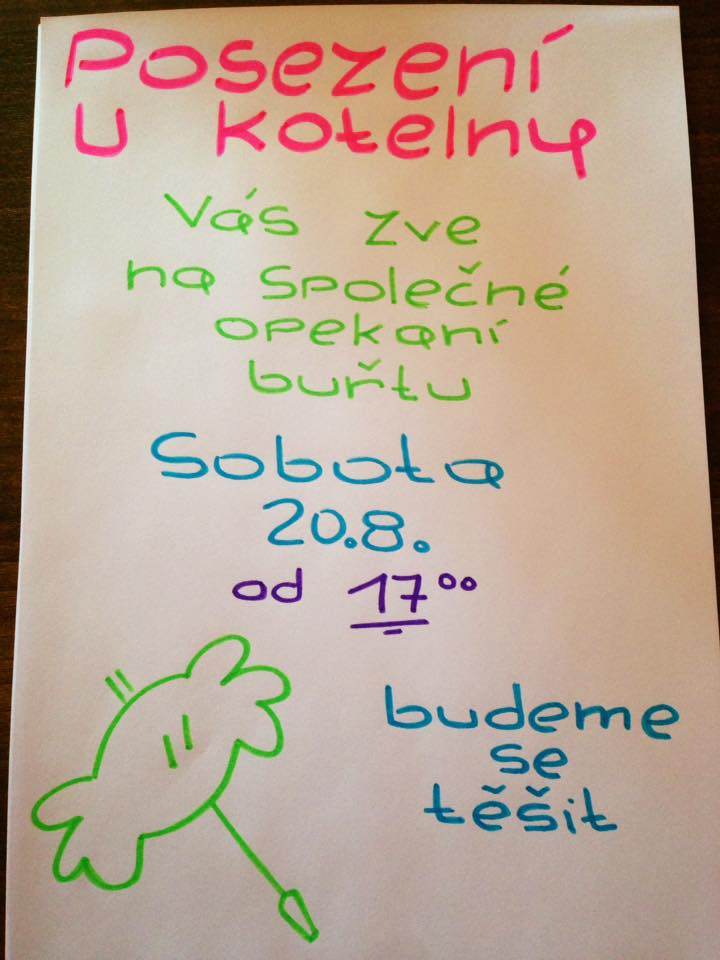 Posezení
u kotelny
Vás zve
na společné
opekaní
buřtu
Sobota
20.8.
od 17⁰⁰
budeme
se
těšit